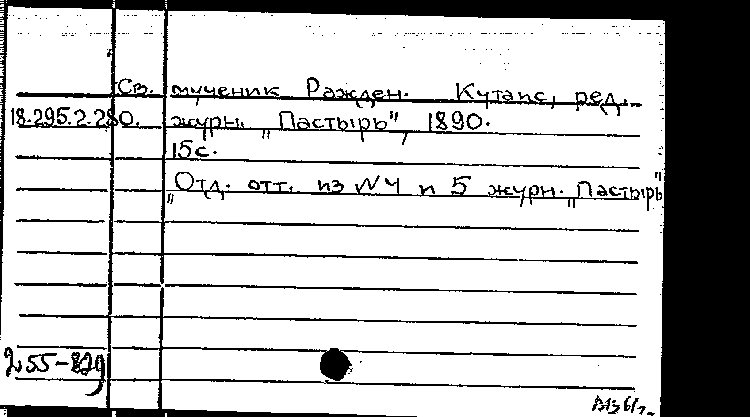 Св. мученик Ражден. Кутаис, ред.
18.295.2.280. журн. „Пастырь", 1890.
15с.
„Отд. отт. из №4 и 5 журн. „Пастырь"
255-829